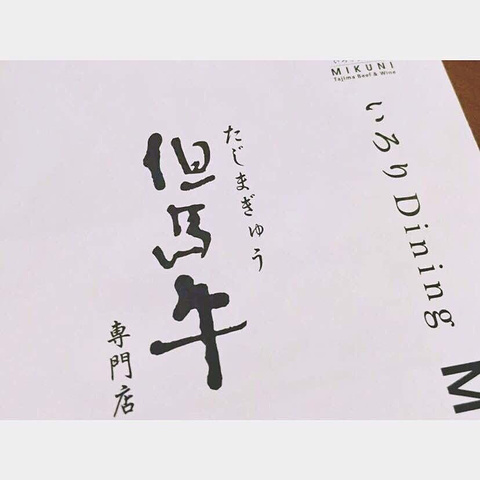 MIKUNI
Tajima Beef & Wine
いろりDining
M
たじまぎゅう
但馬牛
専門店